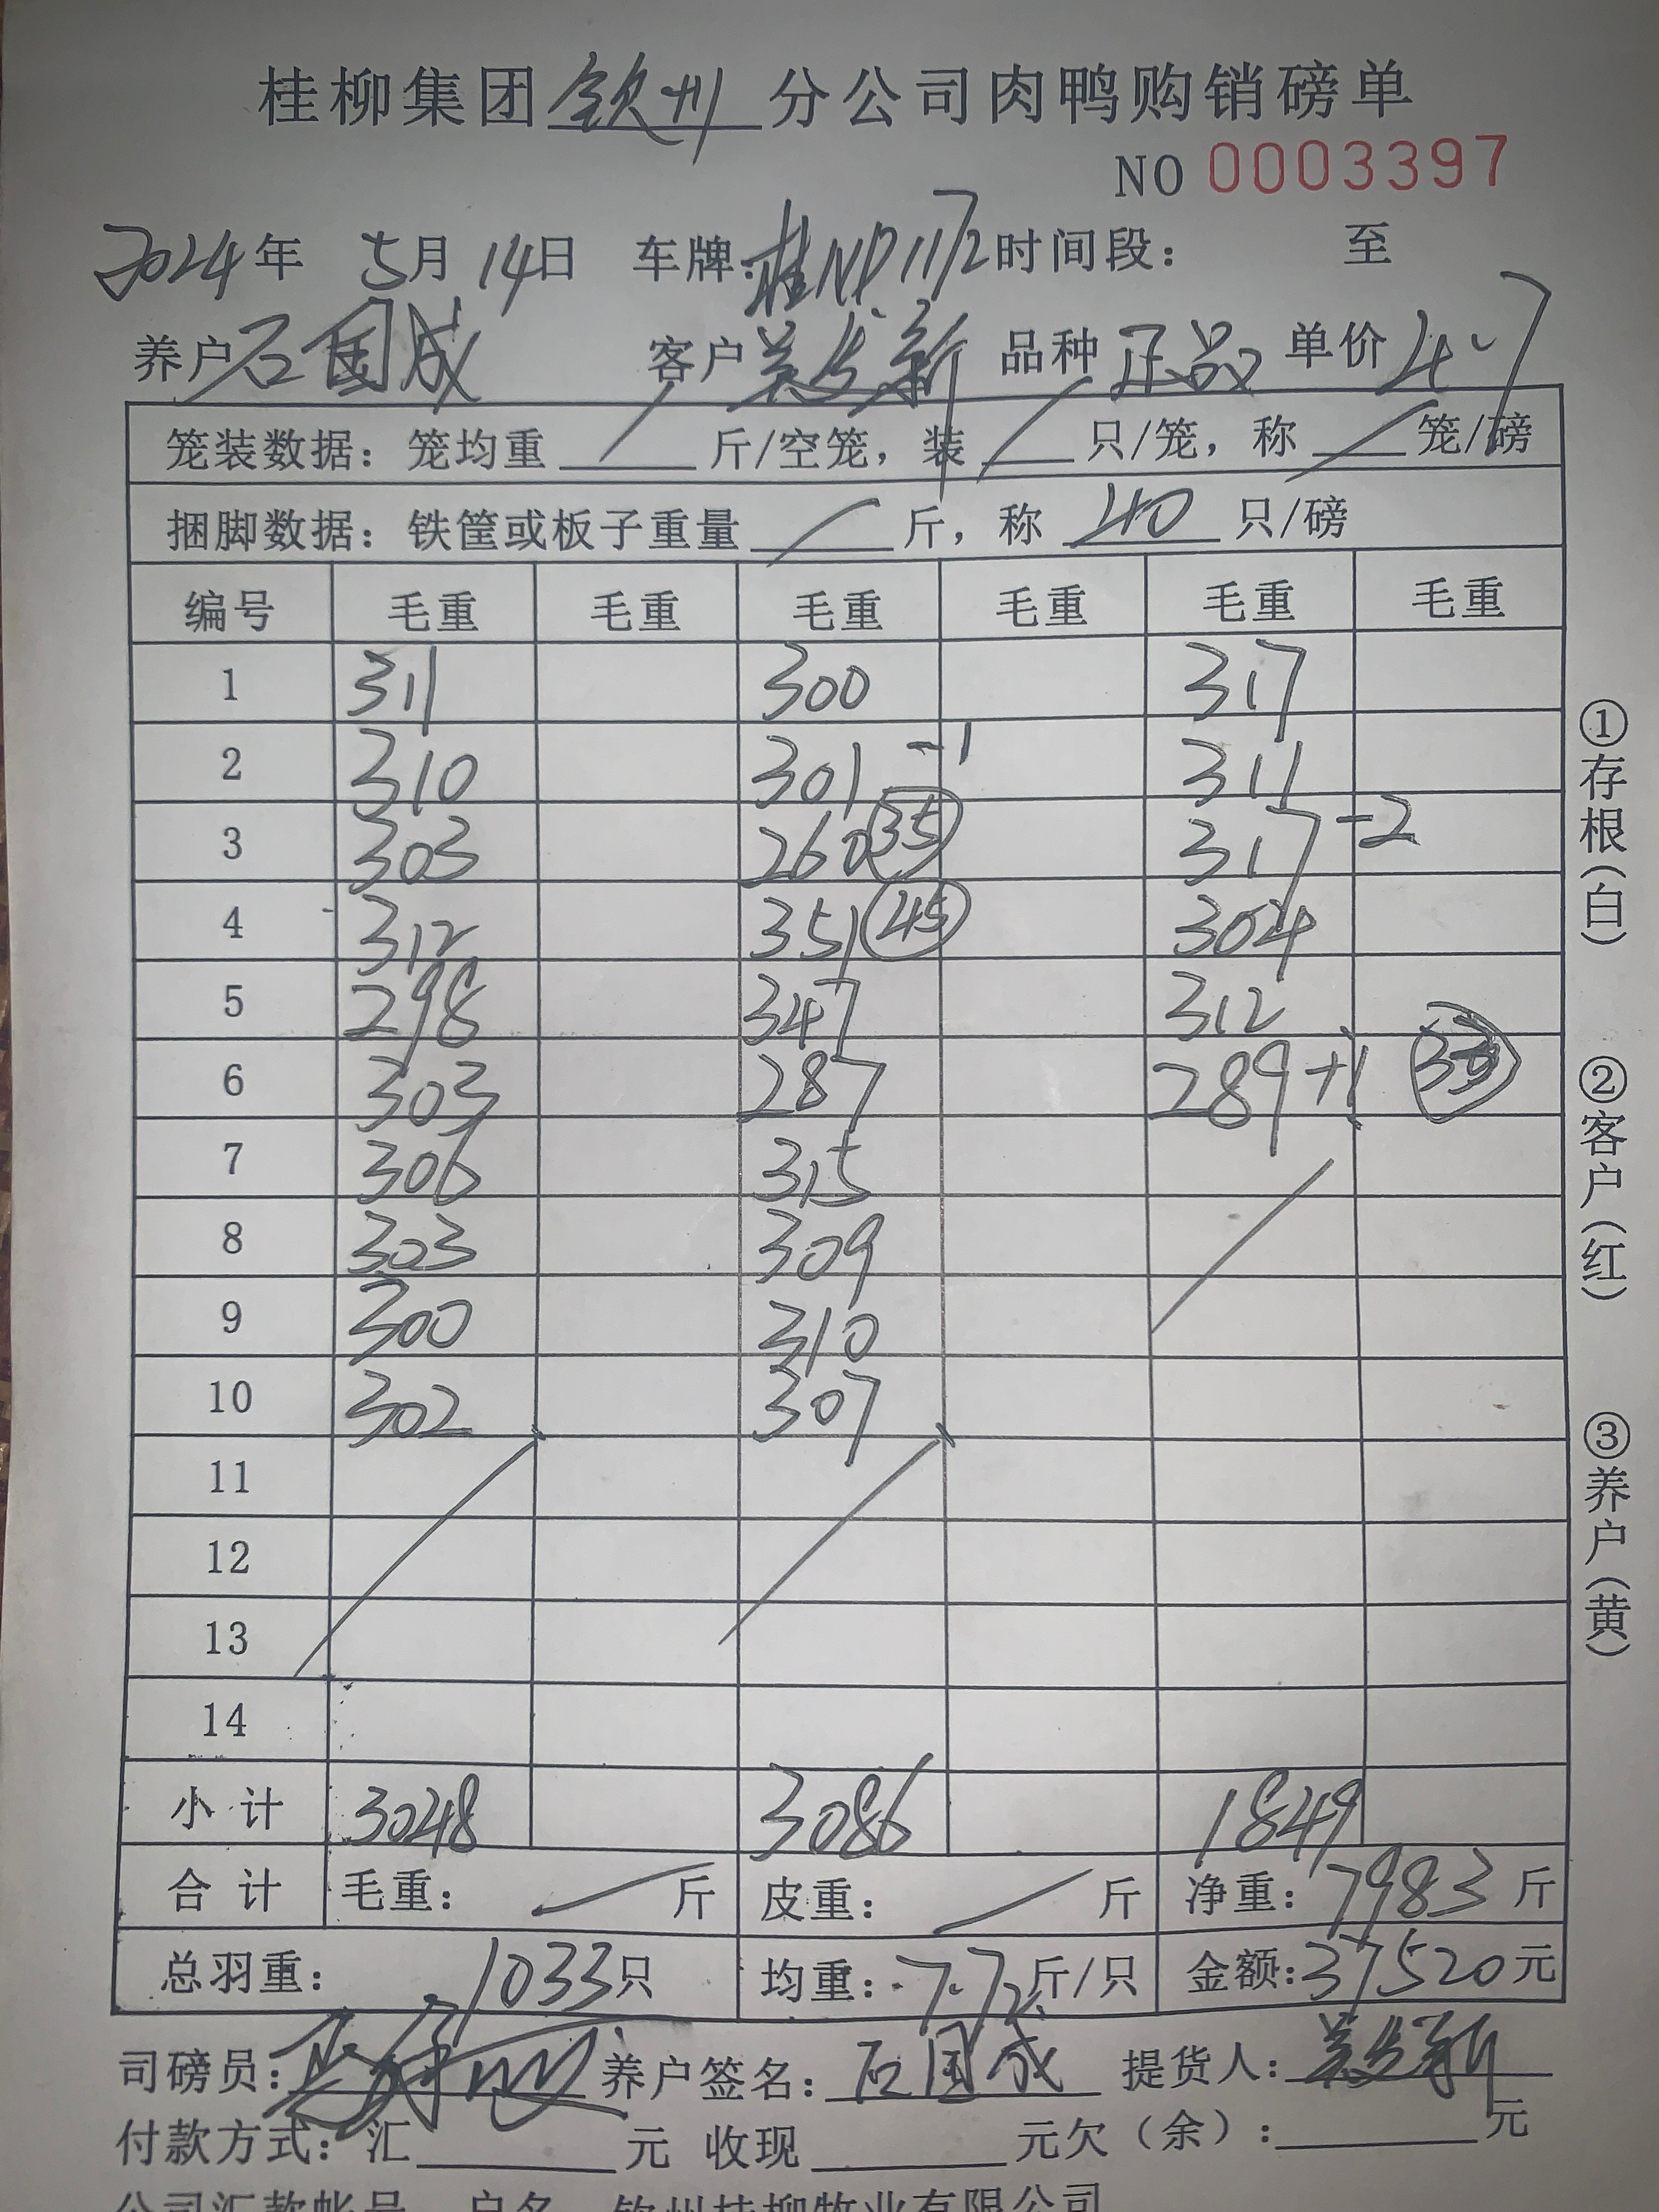 桂柳集团钦州分公司肉鸭购销磅单
NO 0003397
2024年 5月14日 车牌:桂NP1172时间段: 至
养户石国成 客户 品种 正品 单价4.7
笼装数据:笼均重 斤/空笼,装 只/笼,称 笼/磅
捆脚数据:铁筐或板子重量 斤,称 40 只/磅
编号 毛重 毛重 毛重 毛重 毛重 毛重
1 311 300 317
2 310 301 -1 311
3 303 260 35 317 -2
4 312 351 45 304
5 298 347 312
6 303 287 289 +1
7 306 315
8 303 309
9 300 310
10 302 307
11
12
13
14
小计 3048 3086 1849
合计 毛重: 斤 皮重: 斤 净重:7983斤
总羽重: 1033只 均重:7.72斤/只 金额:37520元
司磅员: 养户签名:石国成 提货人:
付款方式:汇 元 收现 元欠(余): 元
公司汇款帐号 户名 钦州桂柳牧业有限公司
①存根(白)
②客户(红)
③养户(黄)